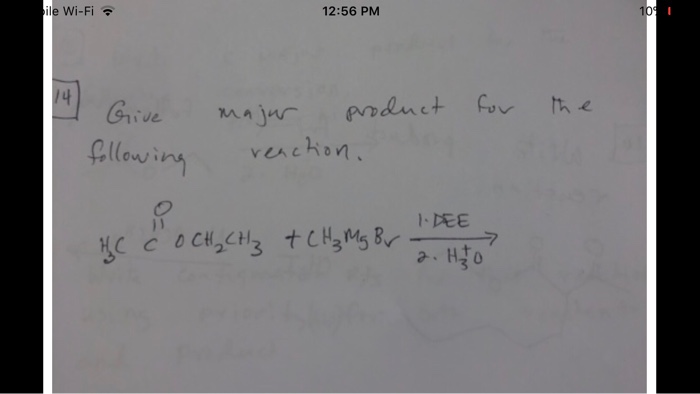 ile Wi-Fi 12:56 PM 10%
14 Give major product for the
following reaction.
O
H3C C OCH2CH3 + CH3MgBr 1. DEE
2. H3+O